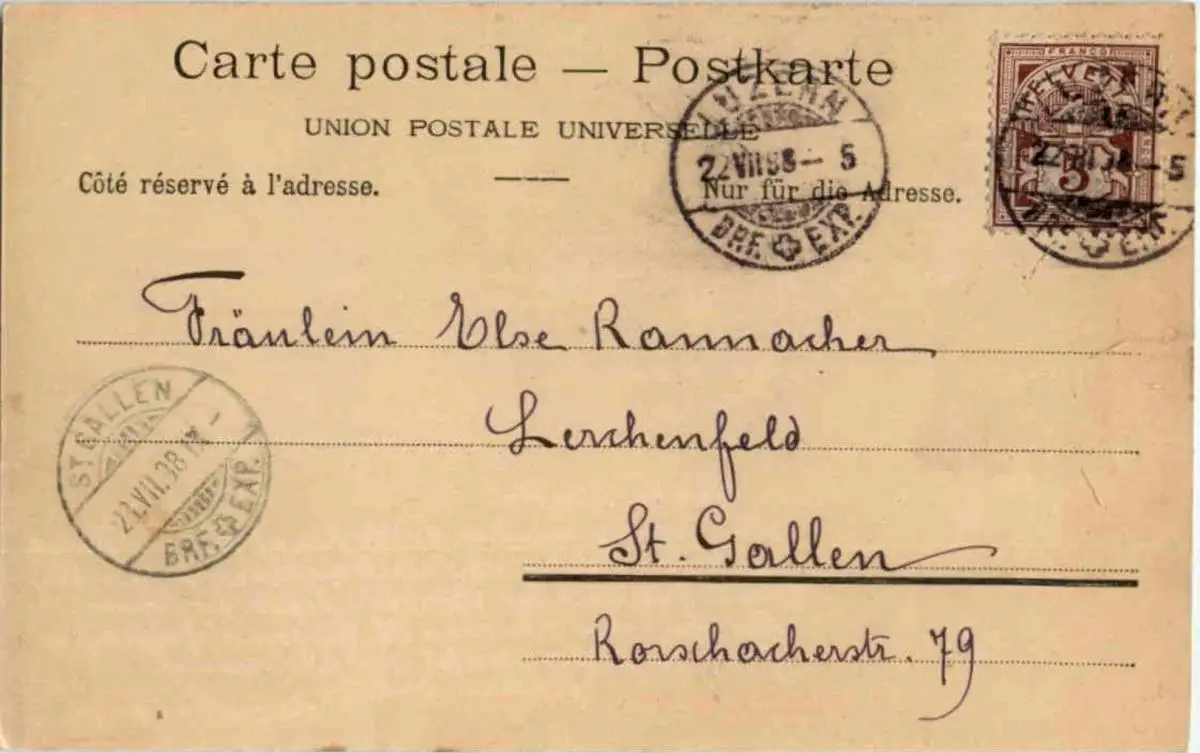 Carte postale — Postkarte
UNION POSTALE UNIVERSELLE
Côté réservé à l'adresse.
Nur für die Adresse.
FRANCO
HELVETIA
5
LUZERN
22.VII.98–5
BRF. EXP.
22.VII.98–5
BRF. EXP.
Fräulein Else Rannacher
Lerchenfeld
St. Gallen
Rorschacherstr. 79
ST GALLEN 1
22.VII.98
BRF. EXP.